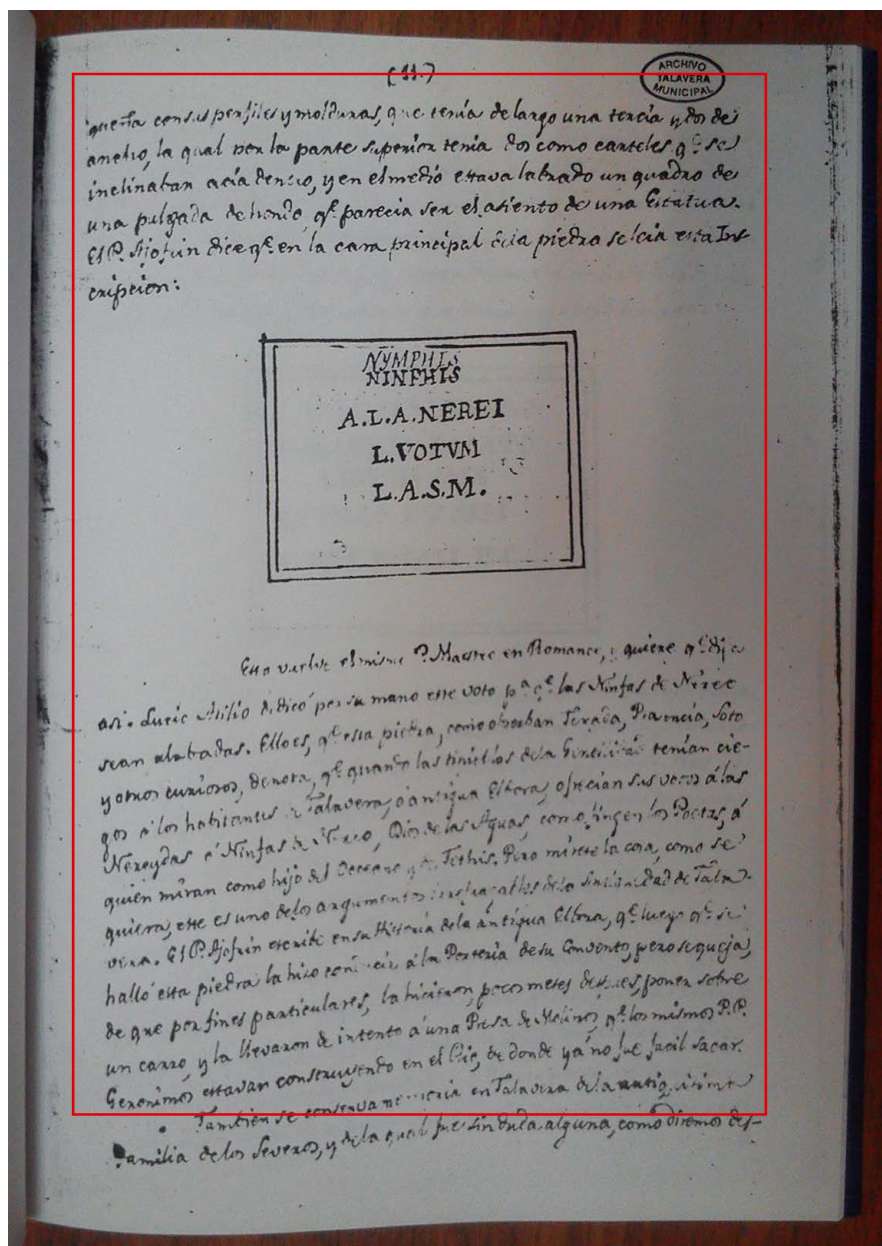 (11.)
ARCHIVO
TALAVERA
MUNICIPAL
queña con sus perfiles y molduras, que tenía de largo una tercia y dos de
ancho, la qual por la parte superior tenia dos como carteles q.e se
inclinaban acía dentro, y en el medio estava labrado un quadro de
una pulgada de hondo, q.e parecia ser el asiento de una Estatua.
El P. Ajofrin dice q.e en la cara principal de la piedra se leía esta Ins-
cripcion:
NYMPHIS
NINFHIS
A.L.A.NEREI
L.VOTVM
L.A.S.M.
Esto vuelve el mismo P. Maestro en Romance, y quiere q.e dija
asi. Lucio Atilio dedicó por su mano este voto p.a q.e las Ninfas de Nereo
sean alabadas. Ello es, q.e esta piedra, como observan Texada, Plasencia, Soto
y otros curiosos, denota, q.e quando las tinieblas de la Gentilidad tenían cie-
gos á los habitantes de Talavera, ó antigua Elbora, ofrecían sus votos á las
Nereydas ó Ninfas de Nereo, Dios de las Aguas, como fingen los Poetas, á
quien miran como hijo del Occeano y de Tethis. Pero mirese la cosa, como se
quiera, este es uno de los argumentos de la Antiguedad de Tala-
vera. El P. Ajofrin escribe en su Historia de la antigua Elbora, q.e luego q.e se
halló esta piedra la hizo conducir á la Portería de su Convento, pero se queja,
de que por fines particulares, la hicieron, pocos meses despues, poner sobre
un carro, y la llevaron de intento á una Presa de Molinos, q.e los mismos P.P.
Geronimos estavan construyendo en el Rio, de donde yá no fue facil sacar.
Tambien se conserva memoria en Talavera de la antiquisima
Familia de los Severos, y de la qual fue sin duda alguna, como diremos des-